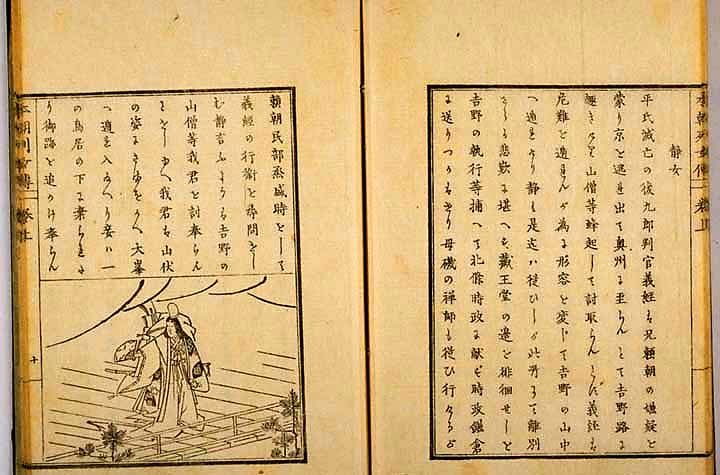 本朝列女傳 巻上
静女
平氏滅亡の後九郎判官義経も兄頼朝の嫌疑を
蒙り京を遁出て奥州に至らんとて吉野路に
趣きたるに山僧等蜂起して討取らんとに義経も
危難を遁れんが為に形容を変じて吉野の山中
へ遁より静も是迄は従ひしが此所にて離別
悲歎に堪へ蔵王堂の邊を徘徊せしを
吉野の執行等捕へて北條時政に献ず時政鎌倉
に送りつかはせり母磯の禅師も従ひ行
頼朝民部丞盛時をして
義経の行衛を尋問せし
む静言ふ吉野の
山僧等我君を討奉らん
とせし我君も山伏
の姿に大峯
へ遁入妾は一
の鳥居の下に
り御跡を追かけ奉らん
本朝列女傳 巻上
十